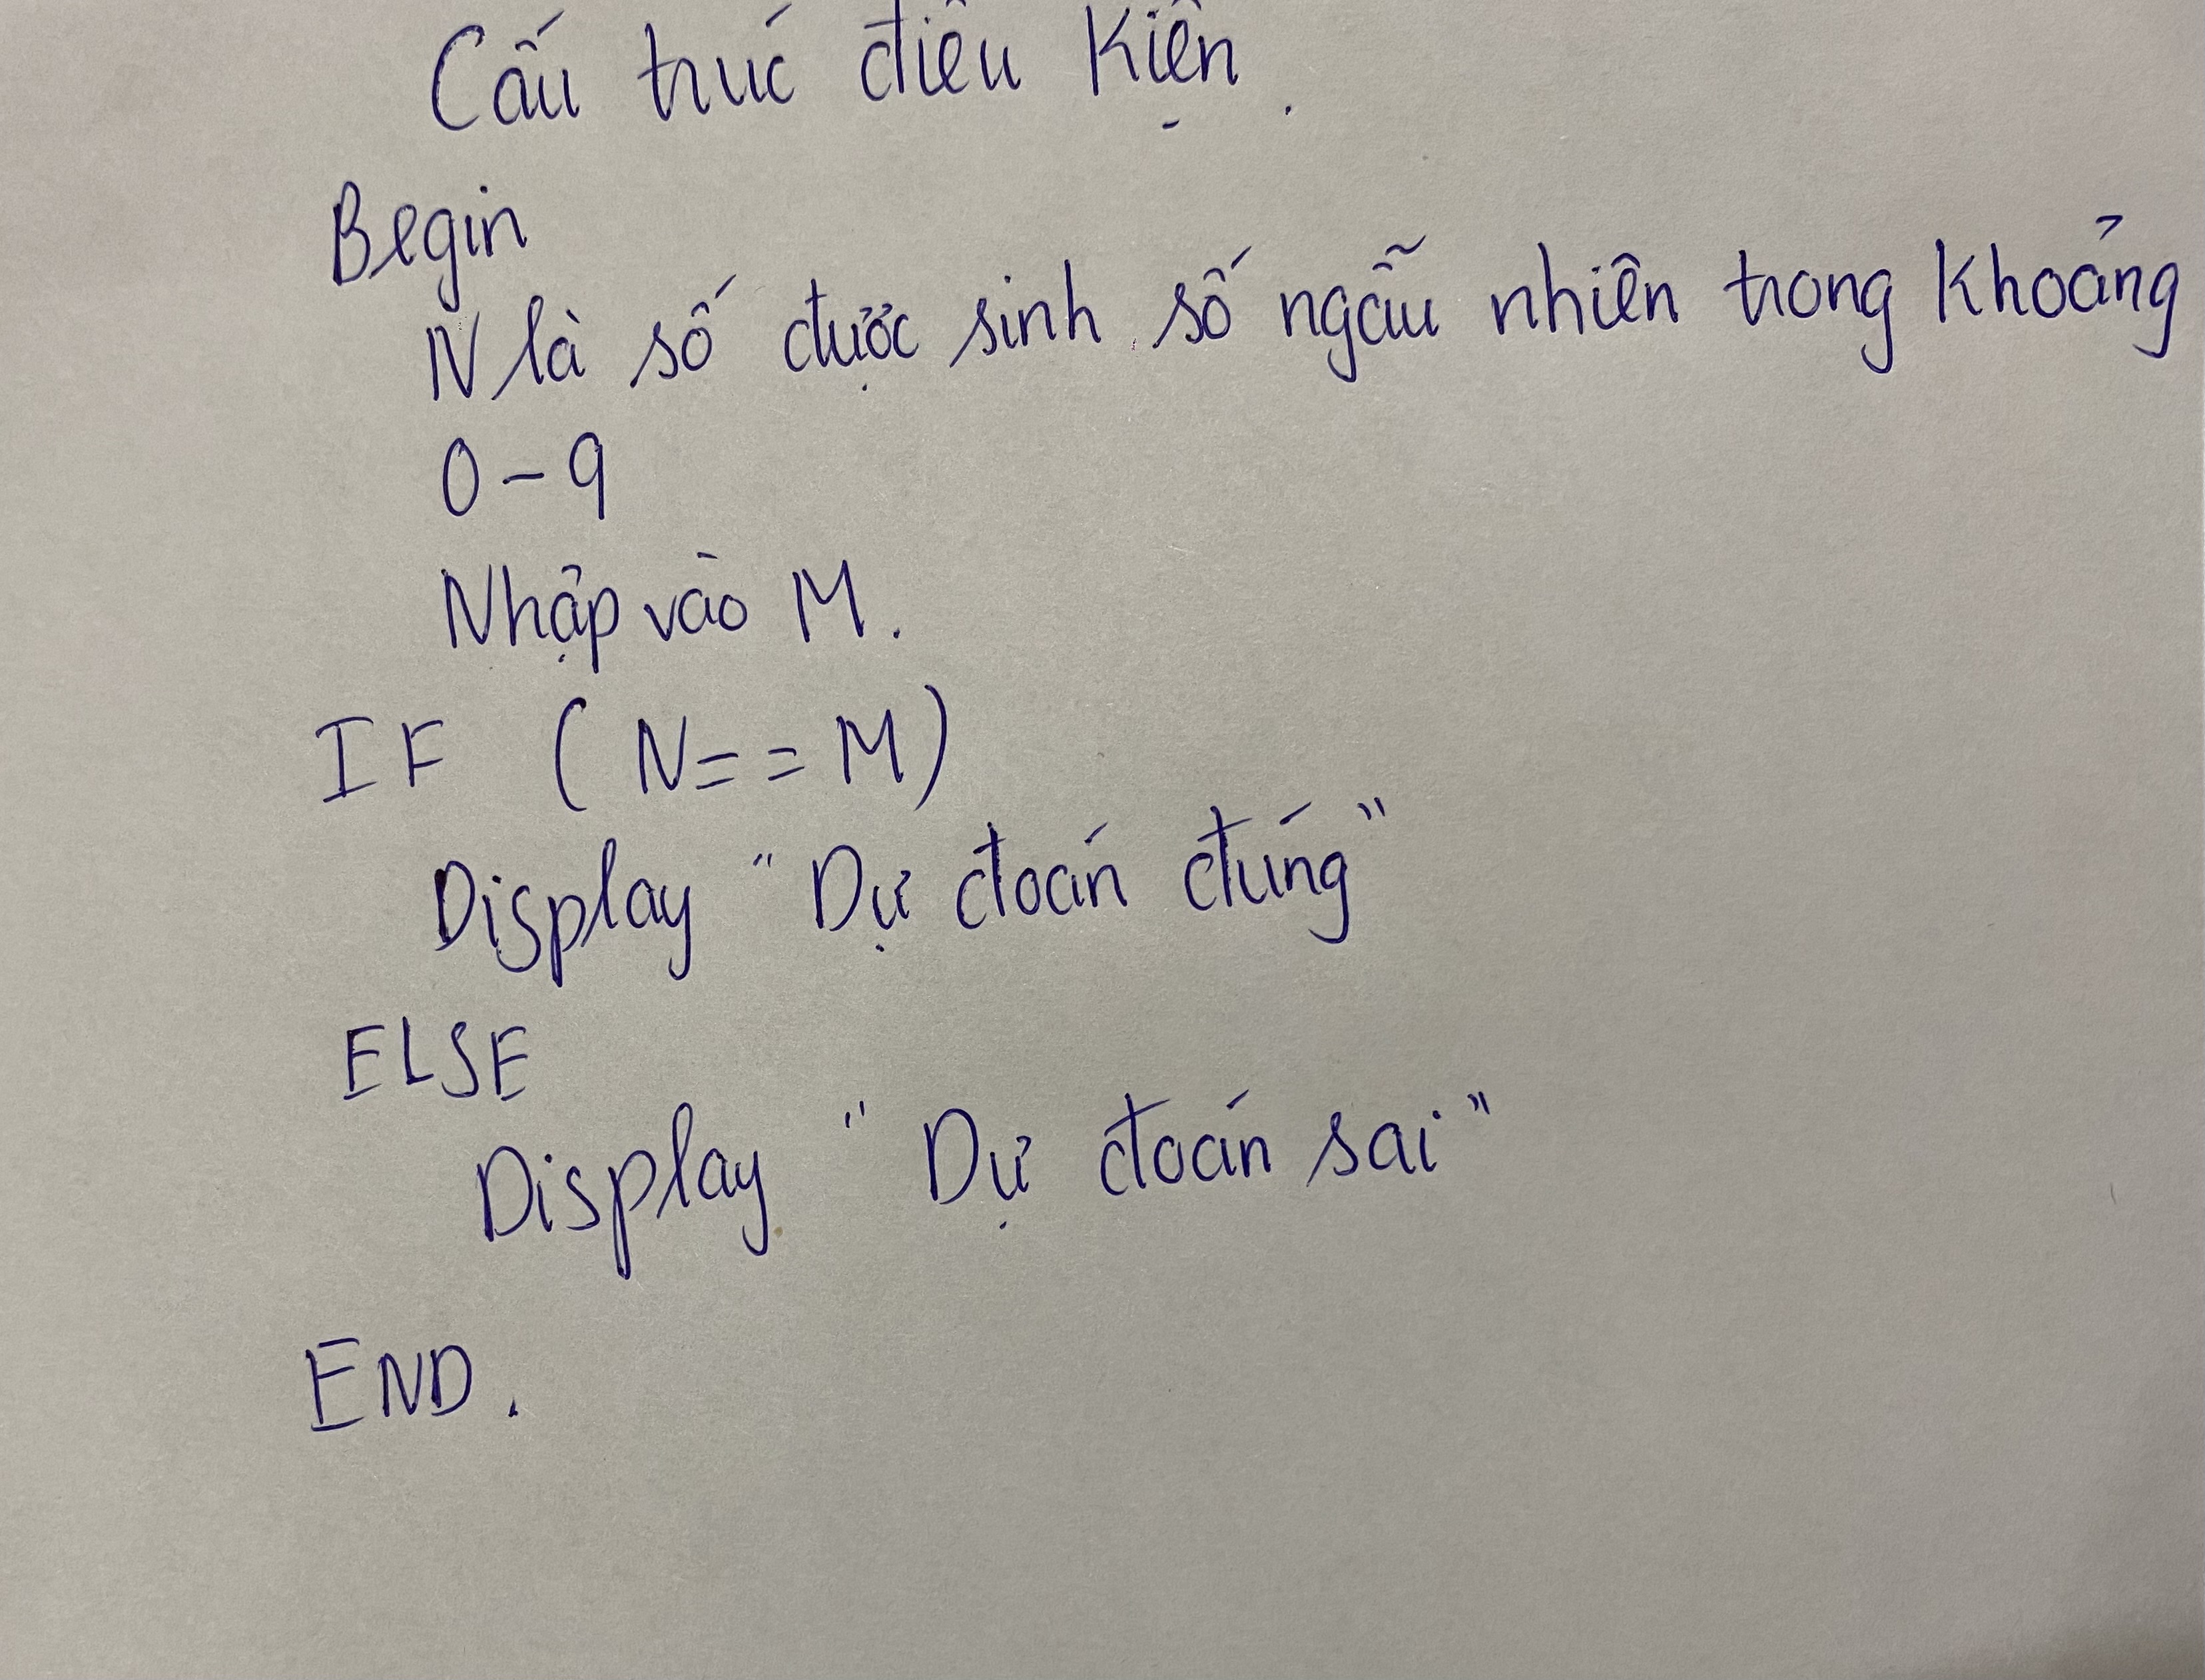 Cấu trúc điều kiện.
Begin
N là số được sinh số ngẫu nhiên trong khoảng
0 - 9
Nhập vào M.
IF ( N = = M)
Display "Dự đoán đúng"
ELSE
Display "Dự đoán sai"
END.